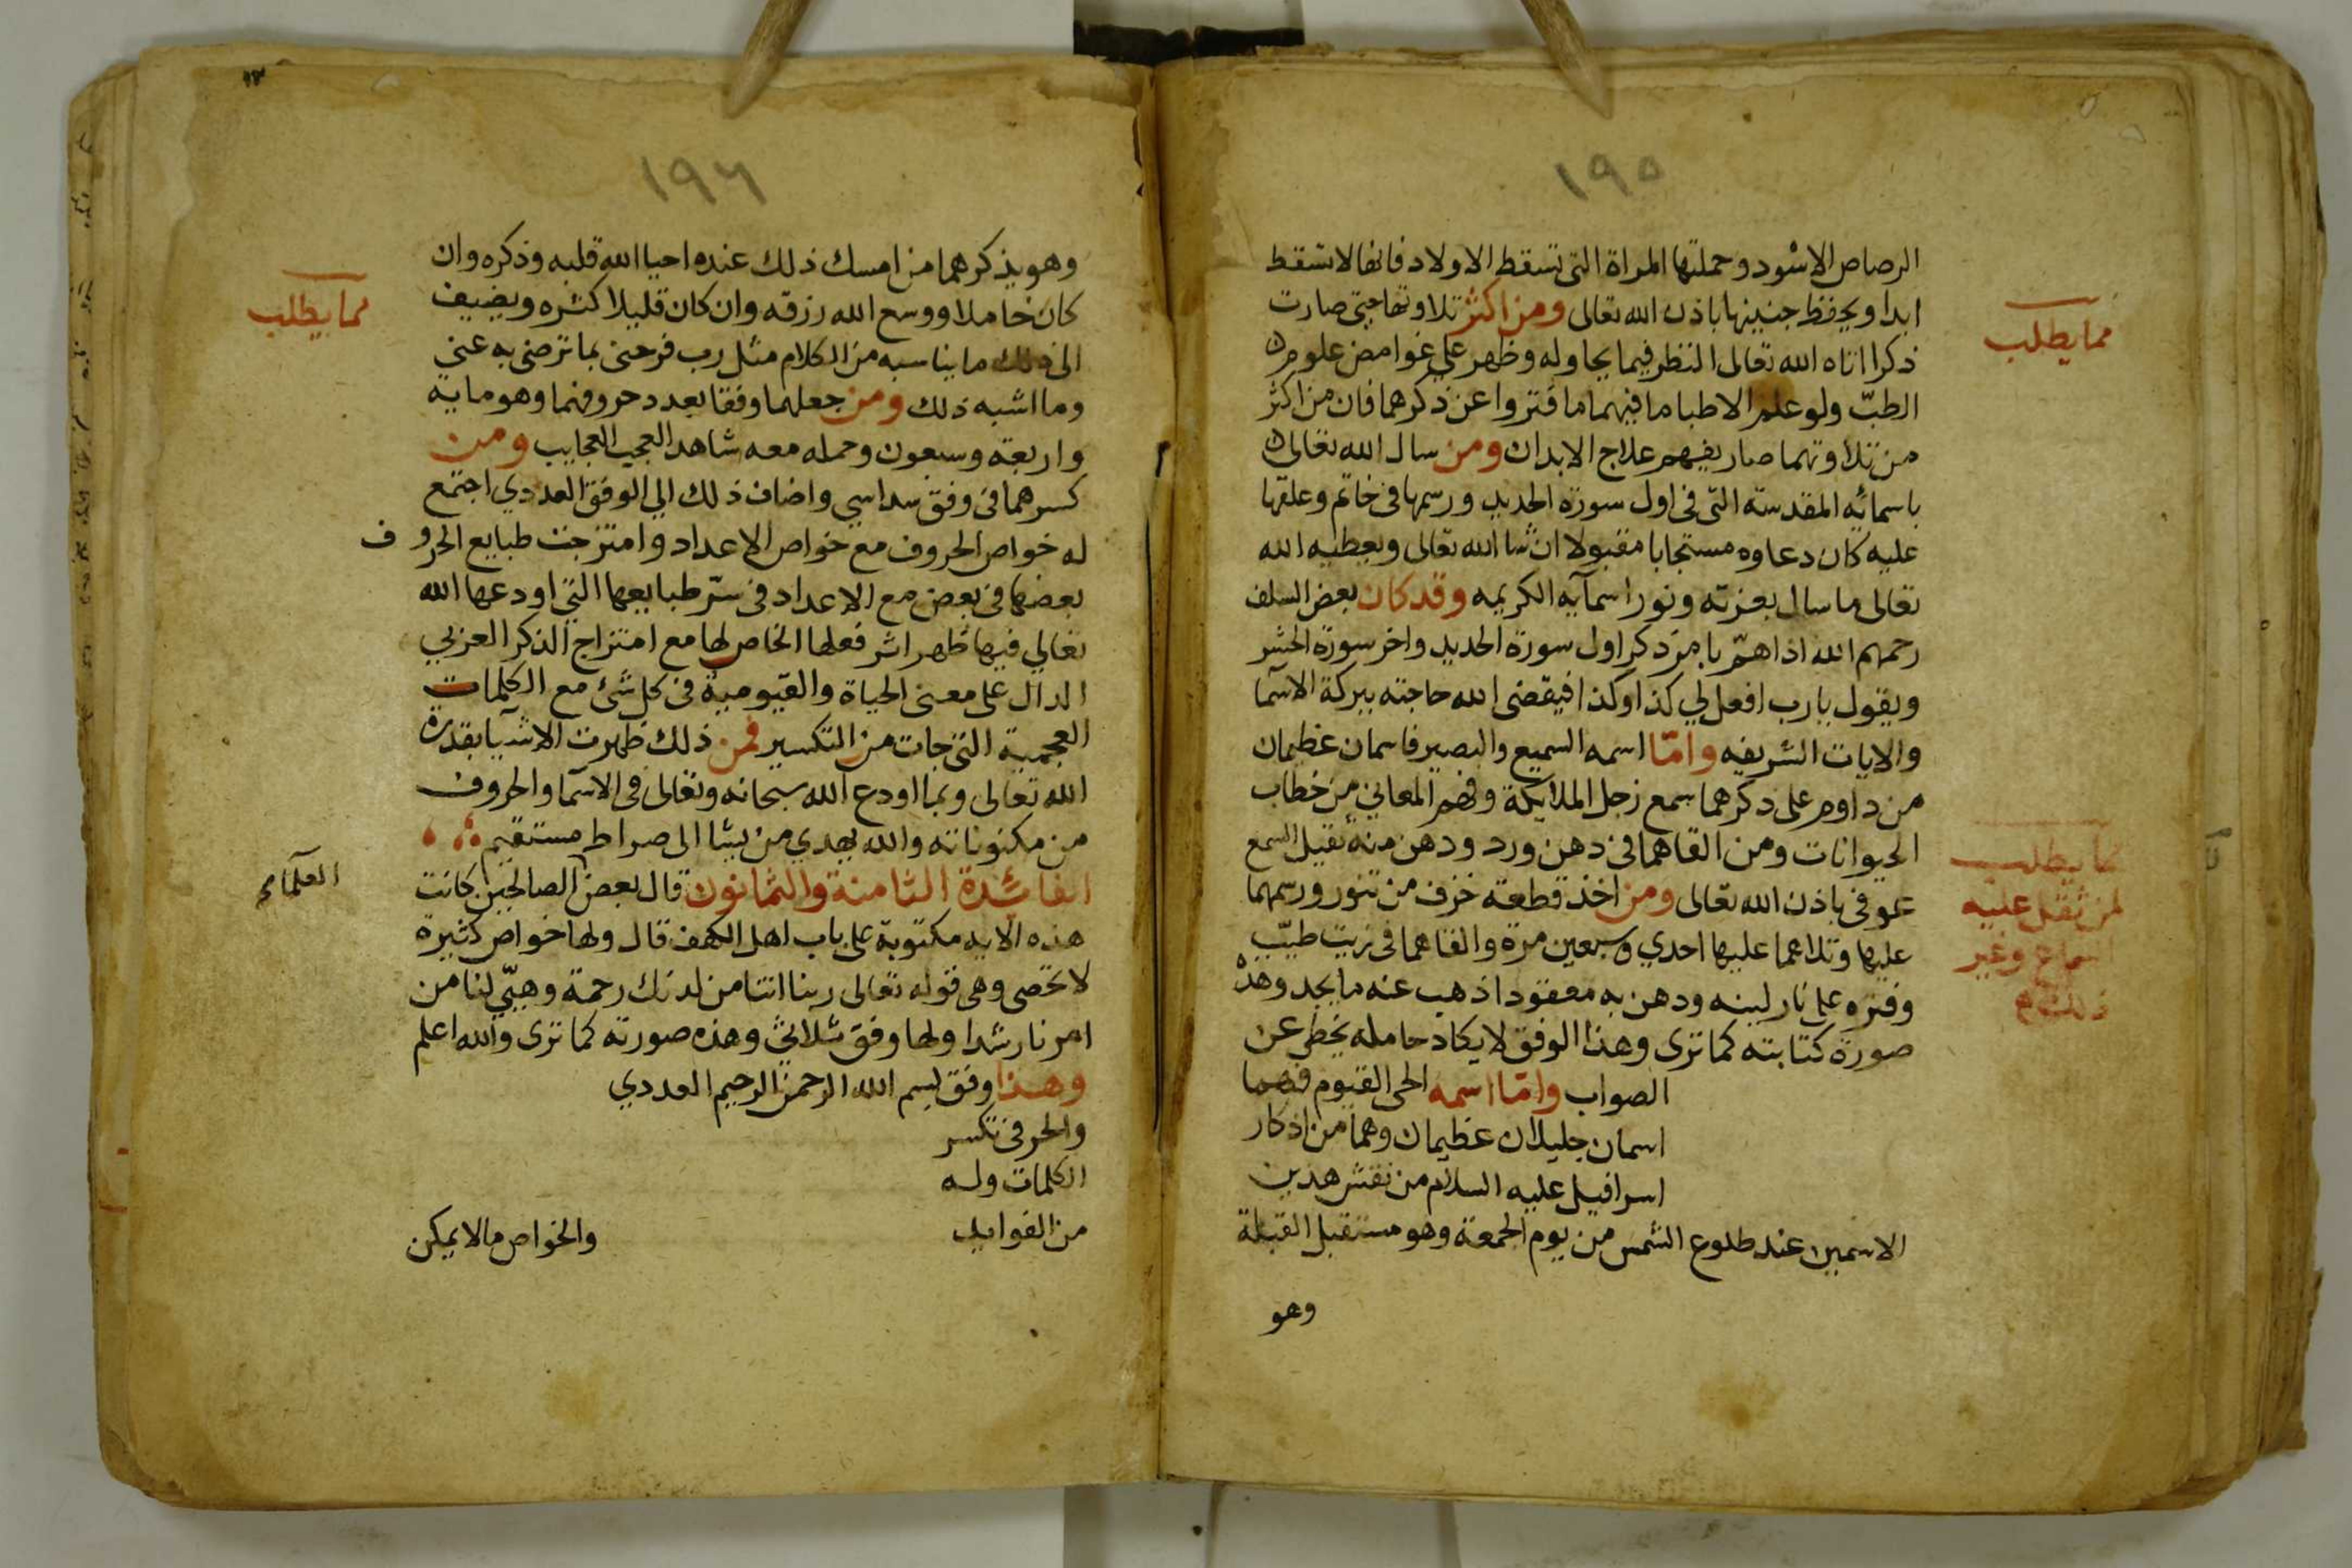 ١٩٥
الرصاص الاسود وحملتها المراة التى تسقط الاولاد فانها لا تسقط
ابدا ويحفظ جنينها باذن الله تعالى ومن اكثر تلاوتها حتى صارت
ذكرا اتاه الله تعالى النظر فيما يحاوله وظهر على غوامض علوم
الطبّ ولو علم الاطبا ما فيهما ما فتروا عن ذكرهما فان من اكثر
من تلاوتهما صار يفهم علاج الابدان ومن سال الله تعالى
باسمائه المقدسة التى فى اول سورة الحديد ورسمها فى خاتم وعلقها
عليه كان دعاوه مستجابا مقبولا ان شا الله تعالى ويعطيه الله
تعالى ما سال بعزته ونور اسمآيه الكريمه وقد كان بعض السلف
رحمهم الله اذا اهمّ بامر ذكر اول سورة الحديد واخر سورة الحشر
ويقول يا رب افعل لي كذا وكذا فيقضى الله حاجته ببركة الاسما
والايات الشريفه وامّا اسمه السميع والبصير فاسمان عظيمان
من داوم على ذكرهما سمع زجل الملايكة وفهم المعاني من خطاب
الحيوانات ومن القاهما فى دهن ورد ودهن منه ثقيل السمع
عوفى باذن الله تعالى ومن اخذ قطعة خزف من تنور ورسمهما
عليها وتلاهما عليها احدي وسبعين مرة والقاهما فى زيت طيّب
وفتره على نار لينه ودهن به معقود اذهب عنه ما يجد وهذه
صورة كتابته كما ترى وهذا الوفق لا يكاد حامله يخطر عن
الصواب وامّا اسمه الحى القيوم فهما
اسمان جليلان عظيمان وهما من اذكار
اسرافيل عليه السلام من نقش هذين
الاسمين عند طلوع الشمس من يوم الجمعة وهو مستقبل القبلة
وهو
مما يطلب
مما يطلب
لمن ثقل عليه
السماع وغير
ذلك
١٩٦
وهو يذكرهما من امسك ذلك عنده احيا الله قلبه وذكره وان
كان خاملا ووسع الله رزقه وان كان قليلا كثره ويضيف
الى ذلك ما يناسبه من الكلام مثل رب فرحنى بما ترضى به عنى
وما اشبه ذلك ومن جعلهما وفقا بعدد حروفهما وهو مايه
واربعة وسبعون وحمله معه شاهد العجب العجايب ومن
كسرهما فى وفق سداسي واضاف ذلك الي الوفق العددي اجتمع
له خواص الحروف مع خواص الاعداد وامتزجت طبايع الحروف
بعضها فى بعض مع الاعداد فى سرّ طبايعها التى اودعها الله
تعالي فيها ظهر اثر فعلها الخاص لها مع امتزاج الذكر العربي
الدال على معنى الحياة والقيومية فى كل شئ مع الكلمات
العجمية التى جات من التكسير فمن ذلك ظهرت الاشيا بقدرة
الله تعالى وبما اودع الله سبحانه وتعالى فى الاسما والحروف
من مكنوناته والله يهدي من يشا الى صراط مستقيم
الفائدة الثامنة والثمانون قال بعض الصالحين كانت
هذه الايه مكتوبة على باب اهل الكهف قال ولها خواص كثيرة
لا تحصى وهى قوله تعالى ربنا اتنا من لدنك رحمة وهيّي لنا من
امرنا رشدا ولها وفق ثلاثي وهذه صورته كما ترى والله اعلم
وهذا وفق بسم الله الرحمن الرحيم العددي
والحرفى تكسر
الكلمات وله
من الفوايد والخواص ما لا يمكن
مما يطلب
العلمآء